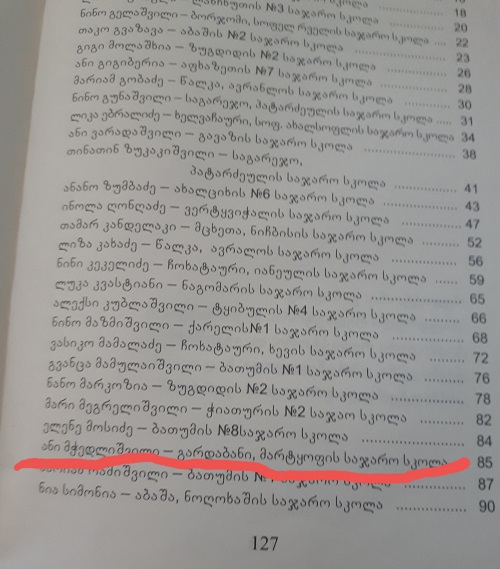 ლანჩხუთის №3 საჯარო სკოლა 18
ნინო გელაშვილი – ბორჯომი, სოფელ რველის საჯარო სკოლა 20
თაკო გვაზავა – აბაშის №2 საჯარო სკოლა ........ 22
გიგი მოლაშხია – ზუგდიდის №2 საჯარო სკოლა ........ 23
ანი გიგიბერია – აფხაზეთის №7 საჯარო სკოლა ........ 26
მარიამ გობაძე – წალკა, ავრანლოს საჯარო სკოლა ........ 28
ნინო გუნაშვილი – საგარეჯო, პატარძეულის საჯარო სკოლა ..... 30
ლიკა ებრალიძე – ხელვაჩაური, სოფ. ახალსოფლის საჯარო სკოლა 31
ანი ვარადაშვილი – გავაზის საჯარო სკოლა 34
თინათინ ზუკაკიშვილი – საგარეჯო, 38
პატარძეულის საჯარო სკოლა ................ 41
ანანო ზუმბაძე – ახალციხის №6 საჯარო სკოლა ................ 43
ინოლა ღონღაძე – ვერტყვიჭალის საჯარო სკოლა ............ 47
თამარ კანდელაკი – მცხეთა, ნიჩბისის საჯარო სკოლა ........ 52
ლიზა კახაძე – წალკა, ავრალოს საჯარო სკოლა ................ 56
ნინი კეკელიძე – ჩოხატაური, იანეულის საჯარო სკოლა ........ 59
ლუკა კვასტიანი – ნაგომარის საჯარო სკოლა ................ 65
ალექსი კუბლაშვილი – ტყიბულის №4 საჯარო სკოლა ........ 66
ნინო მაზმიშვილი – ქარელის№1 საჯარო სკოლა ............ 68
ვასიკო მამალაძე – ჩოხატაური, ხევის საჯარო სკოლა ........ 72
გვანცა მამულაიშვილი – ბათუმის №1 საჯარო სკოლა ........ 76
ნანო მარკოზია – ზუგდიდის №2 საჯარო სკოლა ................ 78
მარი მეგრელიშვილი – ჭიათურის №2 საჯაო სკოლა ........ 82
ელენე მოსიძე – ბათუმის №8საჯარო სკოლა ................ 84
ანი მჭედლიშვილი – გარდაბანი, მარტყოფის საჯარო სკოლა 85
– ბათუმის საჯარო სკოლა ................ 87
ნია სიმონია – აბაშა, ნოღოხაშის საჯარო სკოლა ................ 90
127